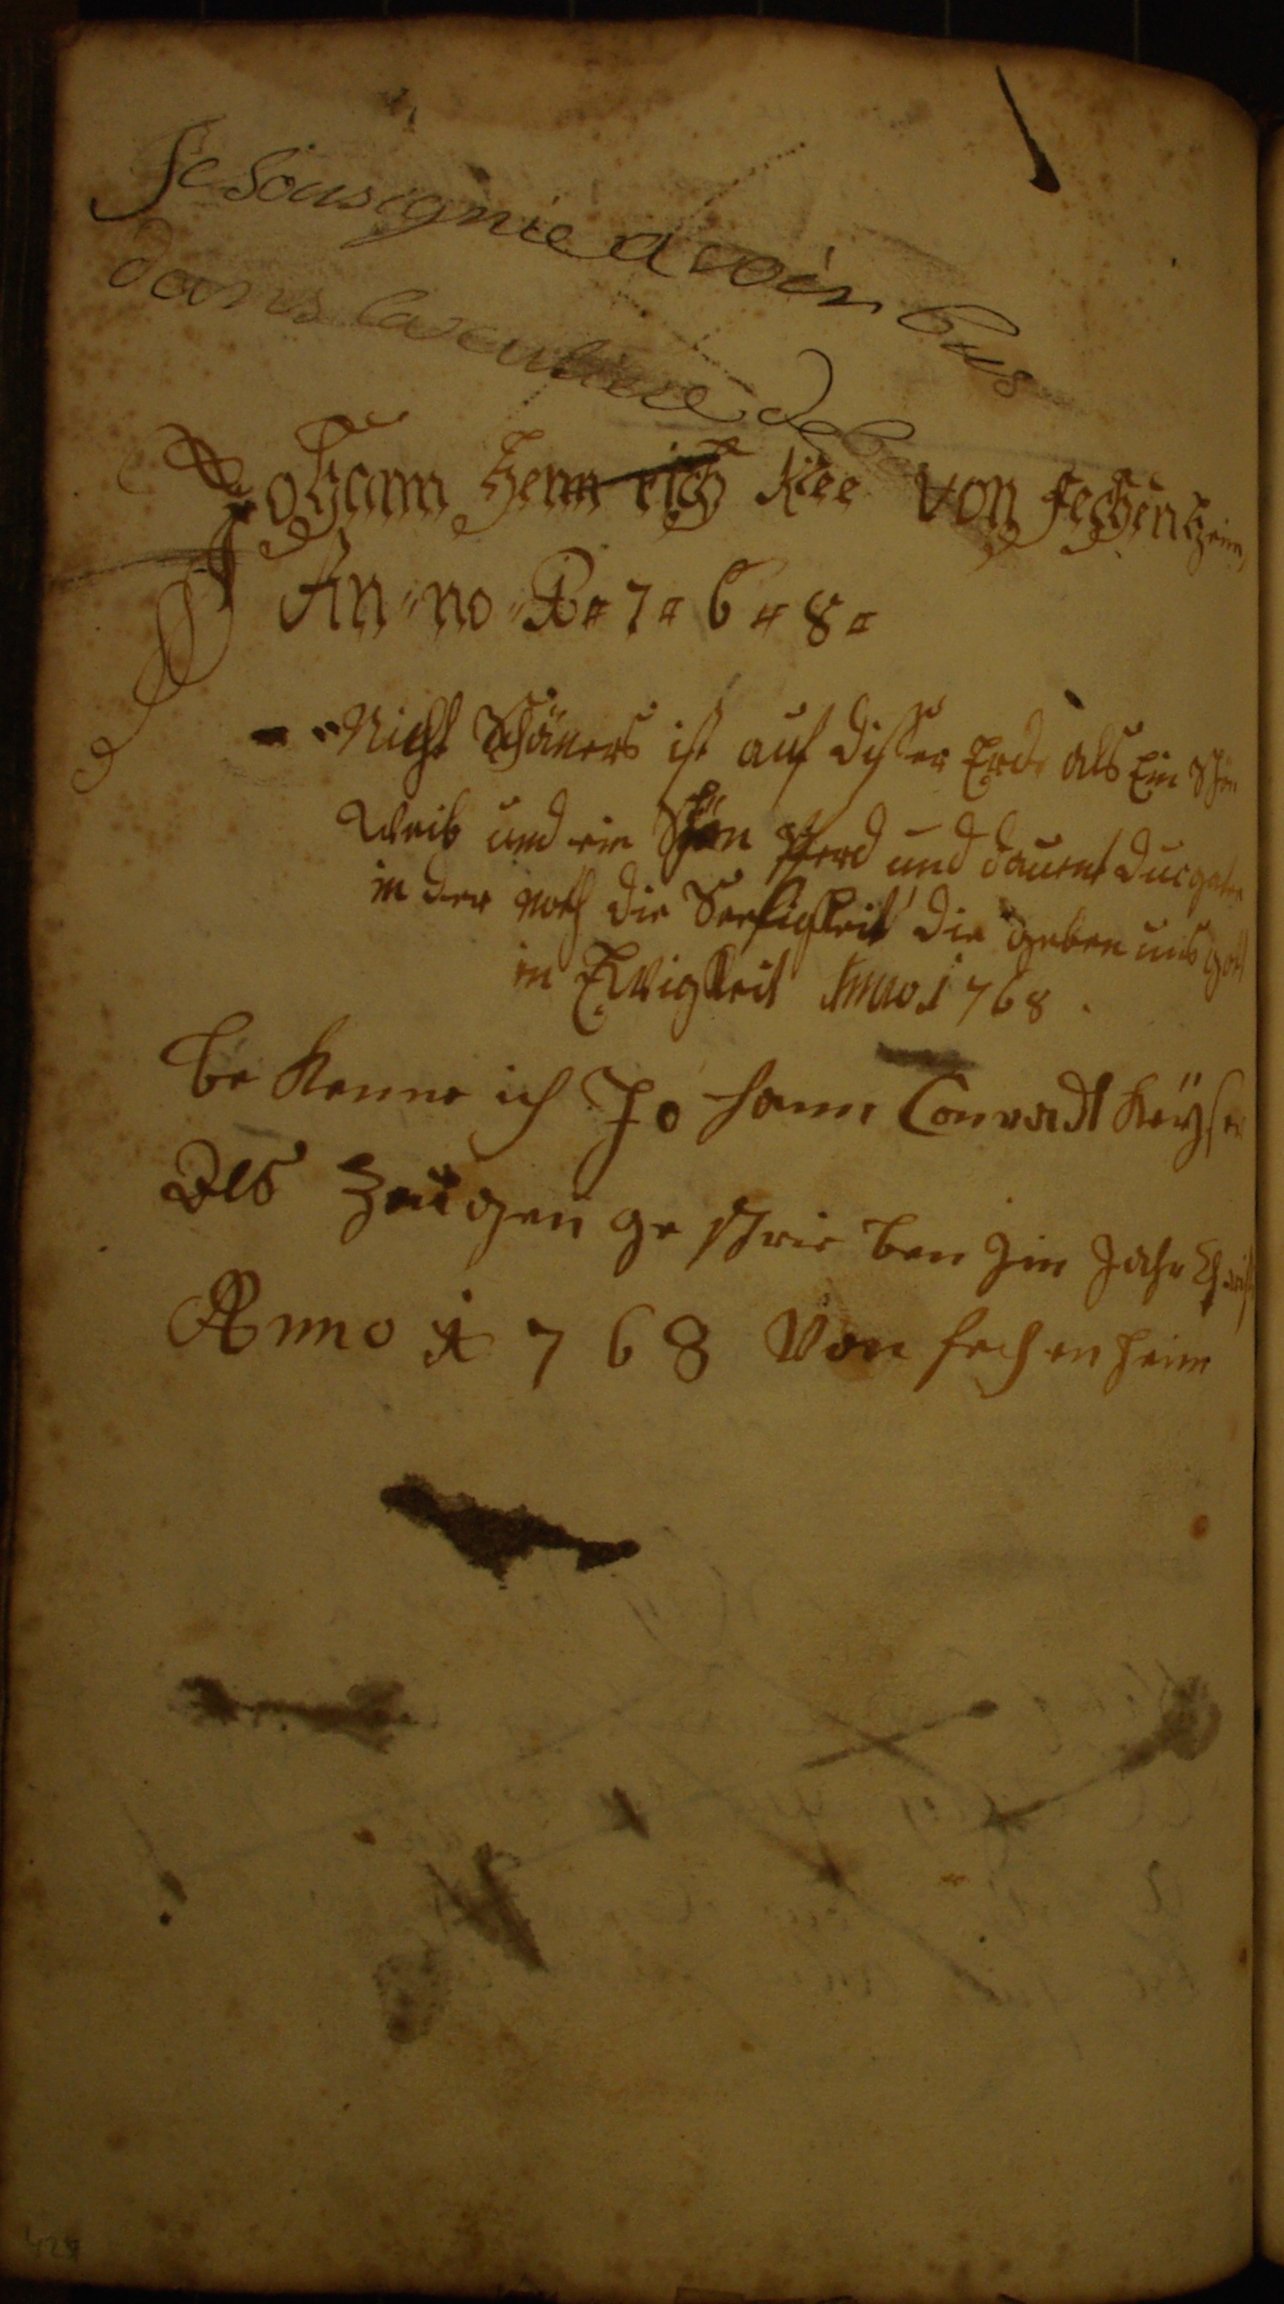 Je Sousignie avoir bus
dans la
Johann Hennrich Klee von Fechenheim
An no 1 7 6 8
Nicht Schäners ist auf disser Erde als Ein Schön
Weib und ein Schön Pferd und
in der noth die Seeligkeit die geben uns Gott
in Ewigkeit Anno 1768.
be Kenne ich Jo hann Conradt Keÿser
Des Zeugen ge schrie ben Jm Jahr Christ
Anno 1 7 6 8 Von fechenheim
428